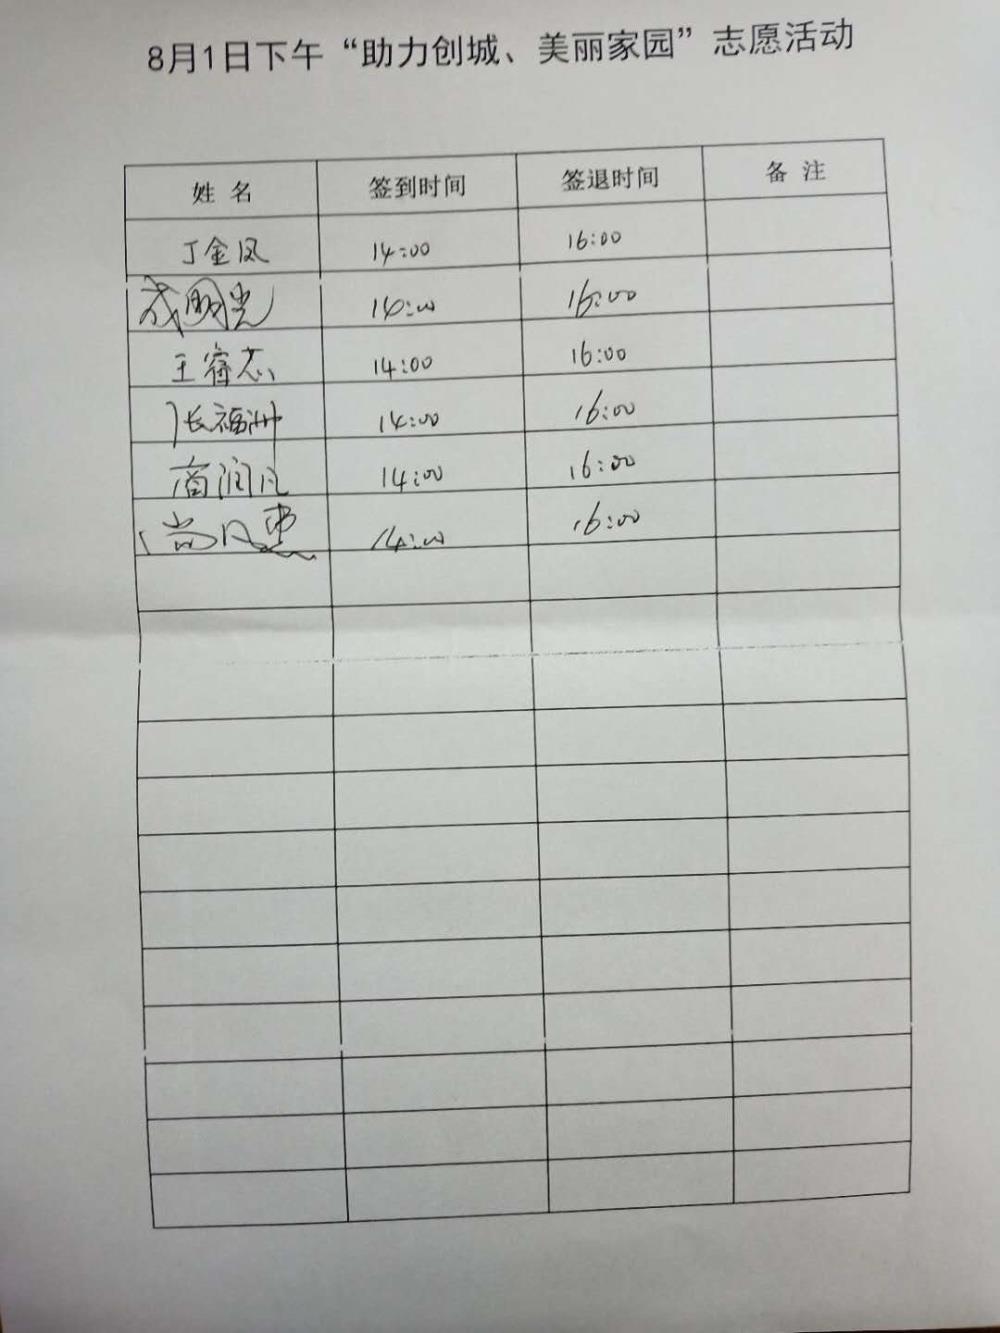 8月1日下午“助力创城、美丽家园”志愿活动
姓名 签到时间 签退时间 备注
丁金凤 14:00 16:00
成明光 14:00 16:00
王睿志 14:00 16:00
张福洲 14:00 16:00
商润凡 14:00 16:00
14:00 16:00